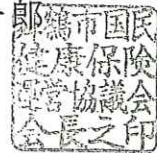 郎
舞鶴市国民
健康保険
運営協議会
会長之印